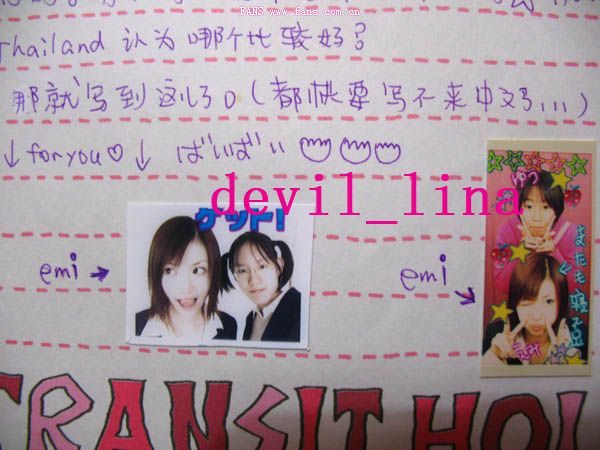 FANS www.fans.com.cn
Thailand 认为哪个比较好?
那就写到这儿了。(都快要写不来中文了...)
↓for you♡↓ ばいばい
devil_lina
ゲット!
emi →
emi
ゆう
またも寝不足
えみ
TRANSIT HOL